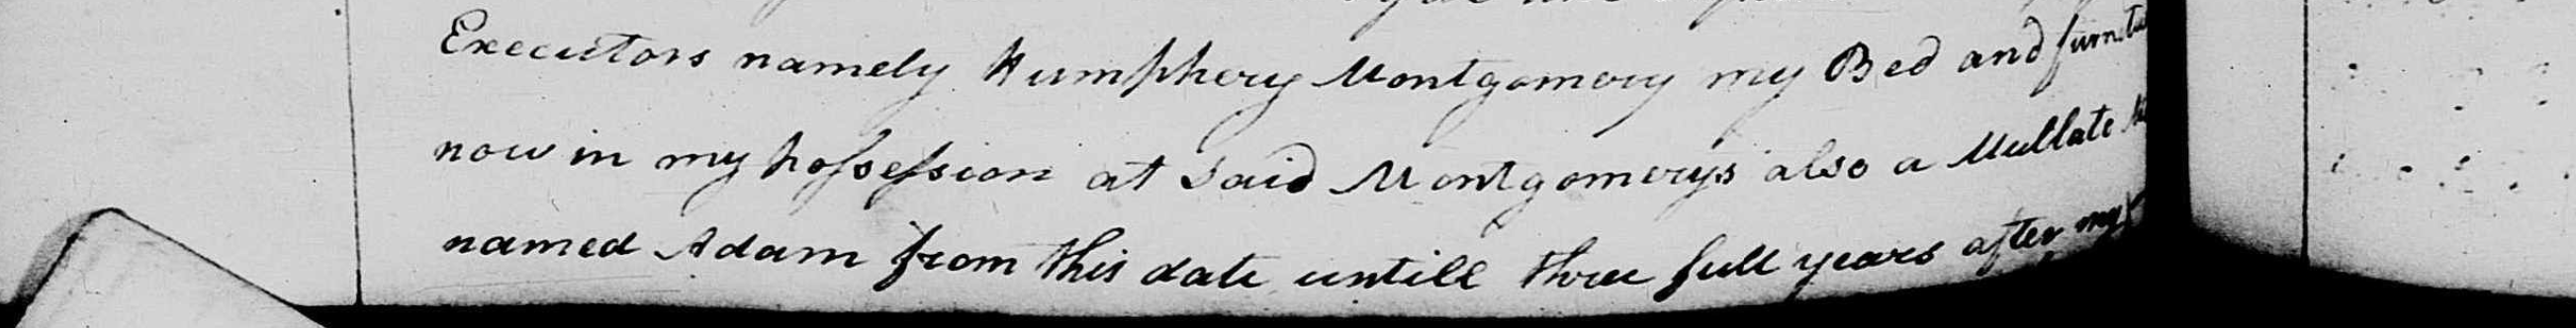 Executors namely Humphery Montgomery my Bed and furnitu
now in my possession at Said Montgomerys also a Mullato
named Adam from this date untill three full years after my